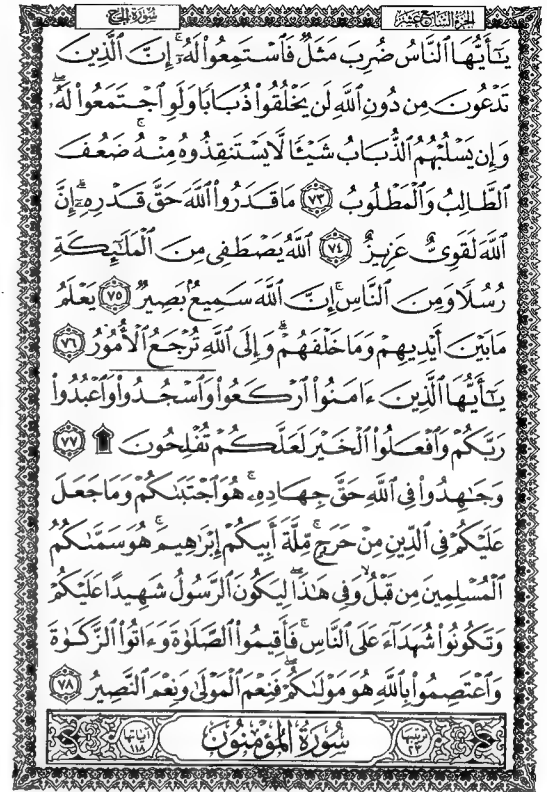 سُورَةُ الحَجّ الجُزءُ السَّابِعَ عَشَرَ
يَٰٓأَيُّهَا ٱلنَّاسُ ضُرِبَ مَثَلٞ فَٱسۡتَمِعُواْ لَهُۥٓۚ إِنَّ ٱلَّذِينَ
تَدۡعُونَ مِن دُونِ ٱللَّهِ لَن يَخۡلُقُواْ ذُبَابٗا وَلَوِ ٱجۡتَمَعُواْ لَهُۥۖ
وَإِن يَسۡلُبۡهُمُ ٱلذُّبَابُ شَيۡـٔٗا لَّا يَسۡتَنقِذُوهُ مِنۡهُۚ ضَعُفَ
ٱلطَّالِبُ وَٱلۡمَطۡلُوبُ ٧٣ مَا قَدَرُواْ ٱللَّهَ حَقَّ قَدۡرِهِۦٓۗ إِنَّ
ٱللَّهَ لَقَوِيٌّ عَزِيزٌ ٧٤ ٱللَّهُ يَصۡطَفِي مِنَ ٱلۡمَلَٰٓئِكَةِ
رُسُلٗا وَمِنَ ٱلنَّاسِۚ إِنَّ ٱللَّهَ سَمِيعُۢ بَصِيرٞ ٧٥ يَعۡلَمُ
مَا بَيۡنَ أَيۡدِيهِمۡ وَمَا خَلۡفَهُمۡۚ وَإِلَى ٱللَّهِ تُرۡجَعُ ٱلۡأُمُورُ ٧٦
يَٰٓأَيُّهَا ٱلَّذِينَ ءَامَنُواْ ٱرۡكَعُواْ وَٱسۡجُدُواْ وَٱعۡبُدُواْ
رَبَّكُمۡ وَٱفۡعَلُواْ ٱلۡخَيۡرَ لَعَلَّكُمۡ تُفۡلِحُونَ ۩ ٧٧
وَجَٰهِدُواْ فِي ٱللَّهِ حَقَّ جِهَادِهِۦۚ هُوَ ٱجۡتَبَىٰكُمۡ وَمَا جَعَلَ
عَلَيۡكُمۡ فِي ٱلدِّينِ مِنۡ حَرَجٖۚ مِّلَّةَ أَبِيكُمۡ إِبۡرَٰهِيمَۚ هُوَ سَمَّىٰكُمُ
ٱلۡمُسۡلِمِينَ مِن قَبۡلُ وَفِي هَٰذَا لِيَكُونَ ٱلرَّسُولُ شَهِيدًا عَلَيۡكُمۡ
وَتَكُونُواْ شُهَدَآءَ عَلَى ٱلنَّاسِۚ فَأَقِيمُواْ ٱلصَّلَوٰةَ وَءَاتُواْ ٱلزَّكَوٰةَ
وَٱعۡتَصِمُواْ بِٱللَّهِ هُوَ مَوۡلَىٰكُمۡۖ فَنِعۡمَ ٱلۡمَوۡلَىٰ وَنِعۡمَ ٱلنَّصِيرُ ٧٨
ترتيبها ٢٣ سُورَةُ المُؤۡمِنُونَ آياتها ١١٨